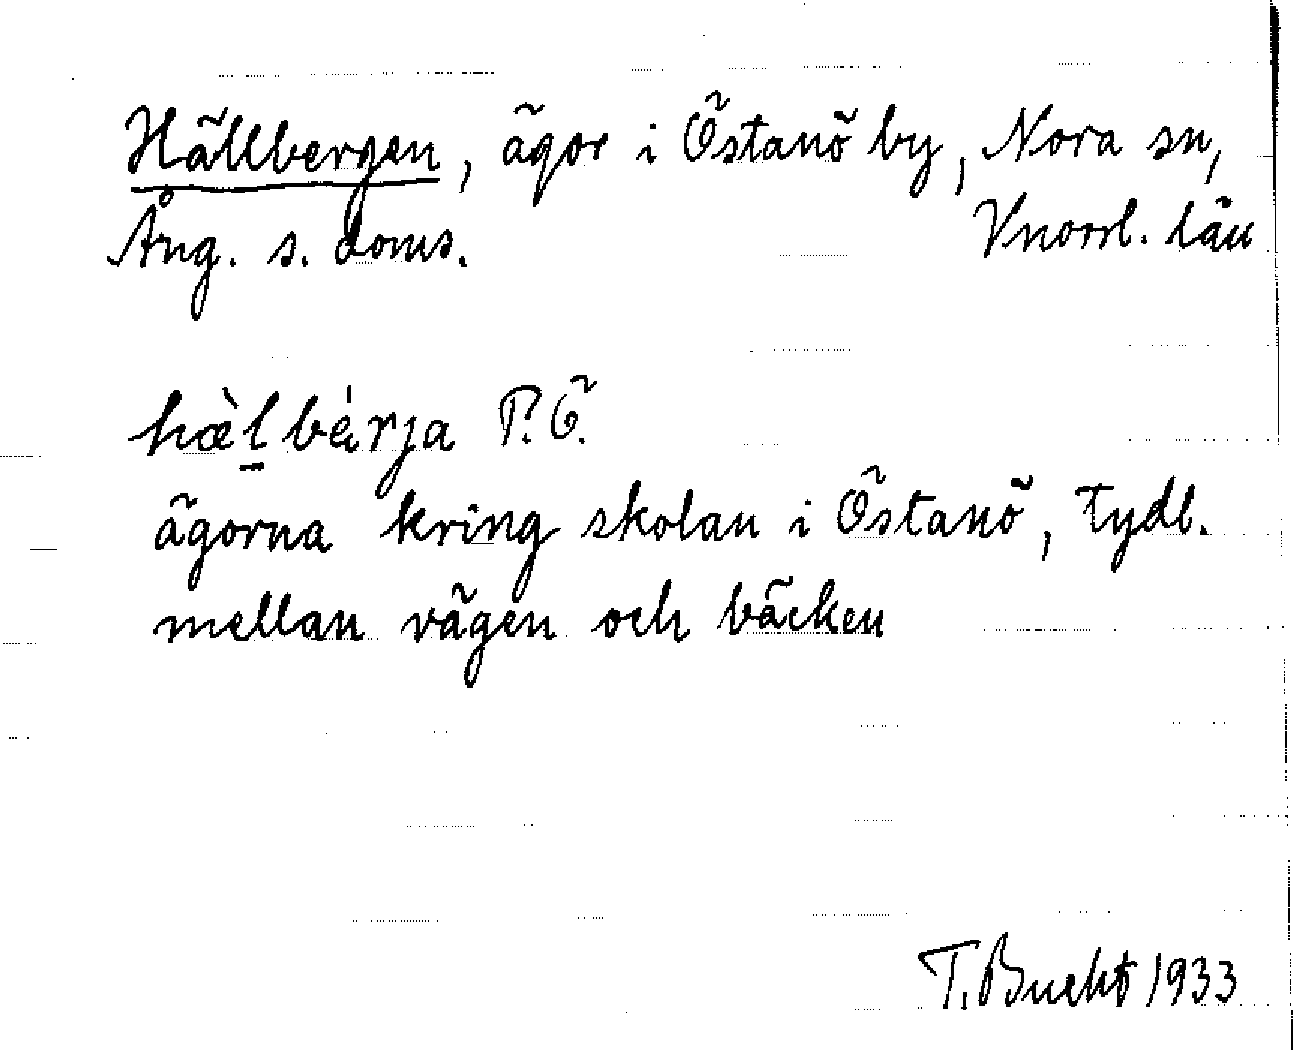 Hällbergen, ägor i Östanö by, Nora sn,
Ång. s. doms. Vnorrl. län
hæ̀l̠bérja P. Ö.
ägorna kring skolan i Östanö, tydl.
mellan vägen och bäcken
T. Bucht 1933